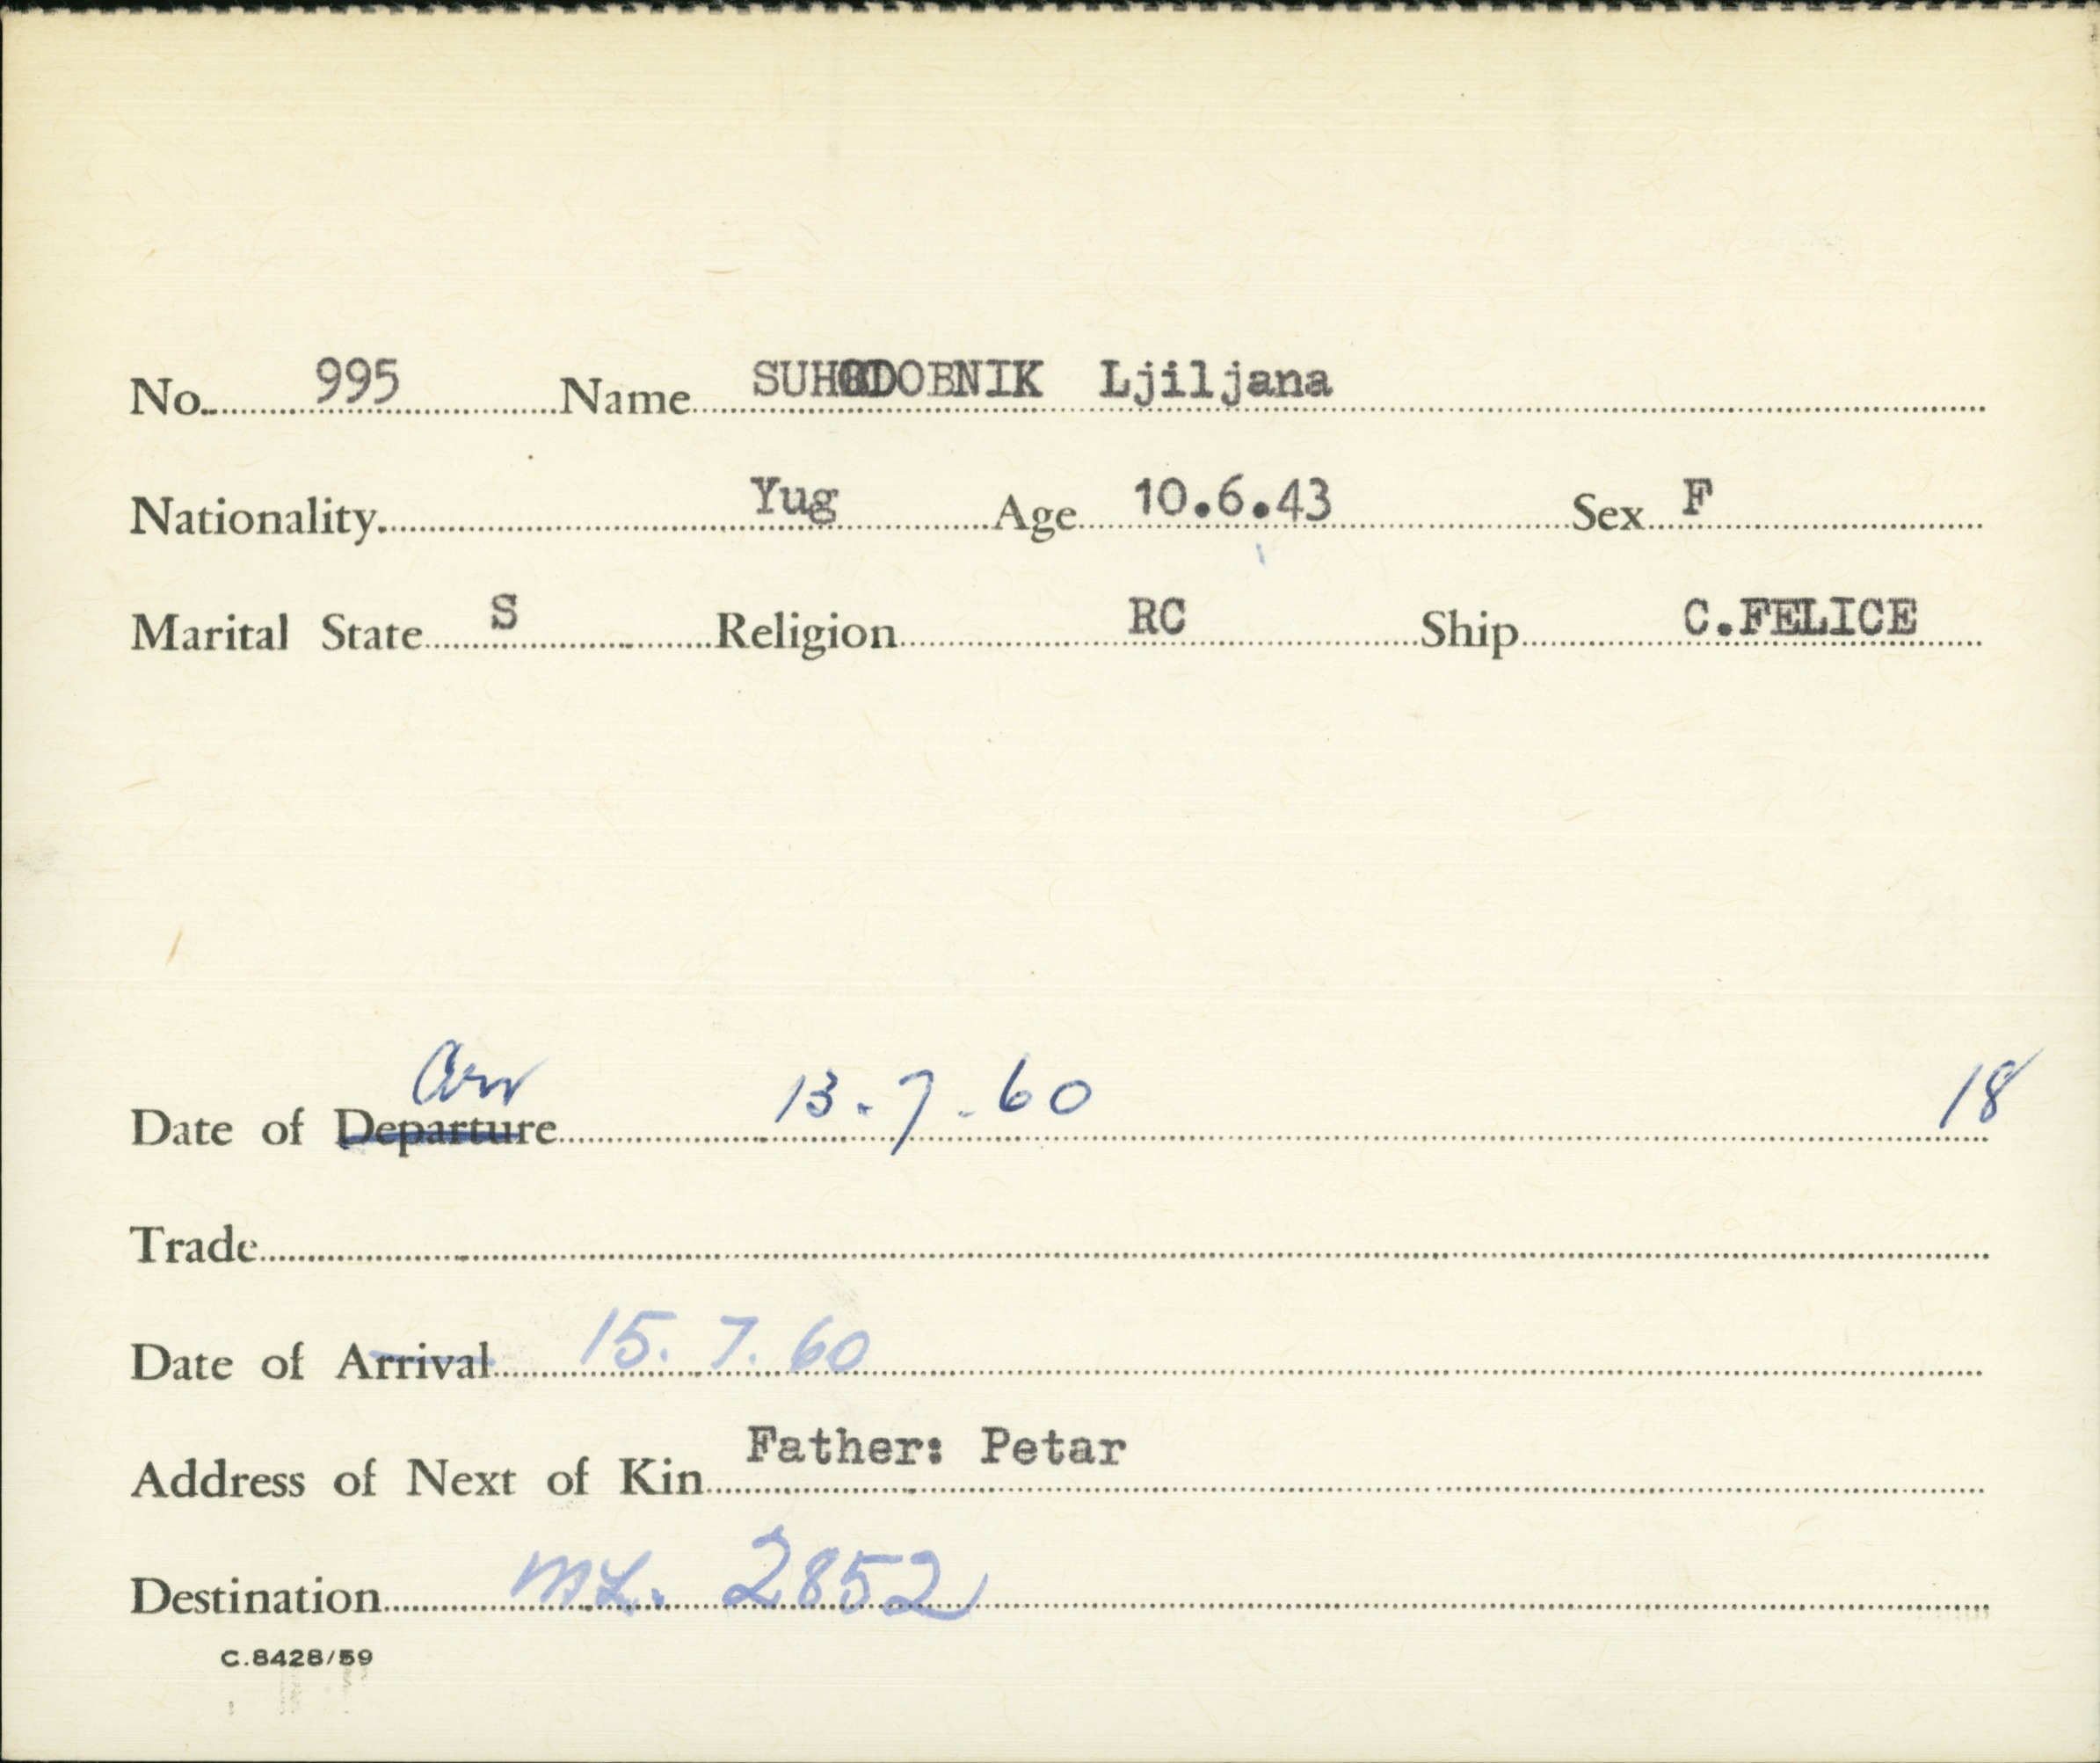 No. 995 Name SUHODOBNIK Ljiljana
Nationality. Yug Age 10.6.43 Sex F
Marital State S Religion RC Ship C.FELICE
Arr
Date of Departure 13.7.60 18
Trade
Date of Arrival 15.7.60
Father: Petar
Address of Next of Kin
Destination ML. 2852
C.8428/59